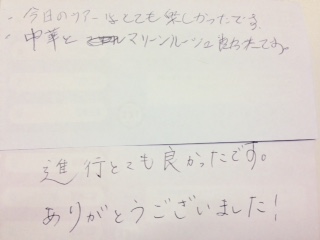 ・今日のツアーはとても楽しかったです。
・中華と マリーンルージュ良かったです。
進行とても良かったです。
ありがとうございました!